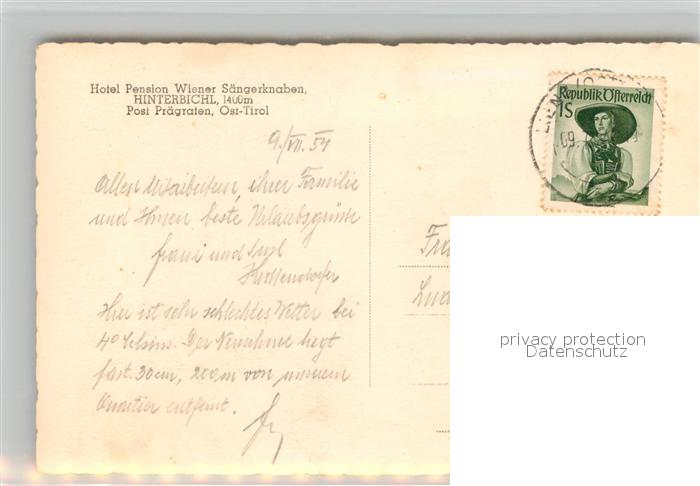 Hotel Pension Wiener Sängerknaben,
HINTERBICHL, 1400m
Post Prägraten, Ost-Tirol
9./VII. 54
Allen Mitarbeitern, ihrer Familie
und Ihnen beste Urlaubsgrüsse
Franz und
Hier ist sehr schlechtes Wetter bei
4° Celsius. Der Neuschnee liegt
fast 30 cm, 200 m von unserem
Quartier entfernt.
Republik Österreich
1S
09.
privacy protection
Datenschutz